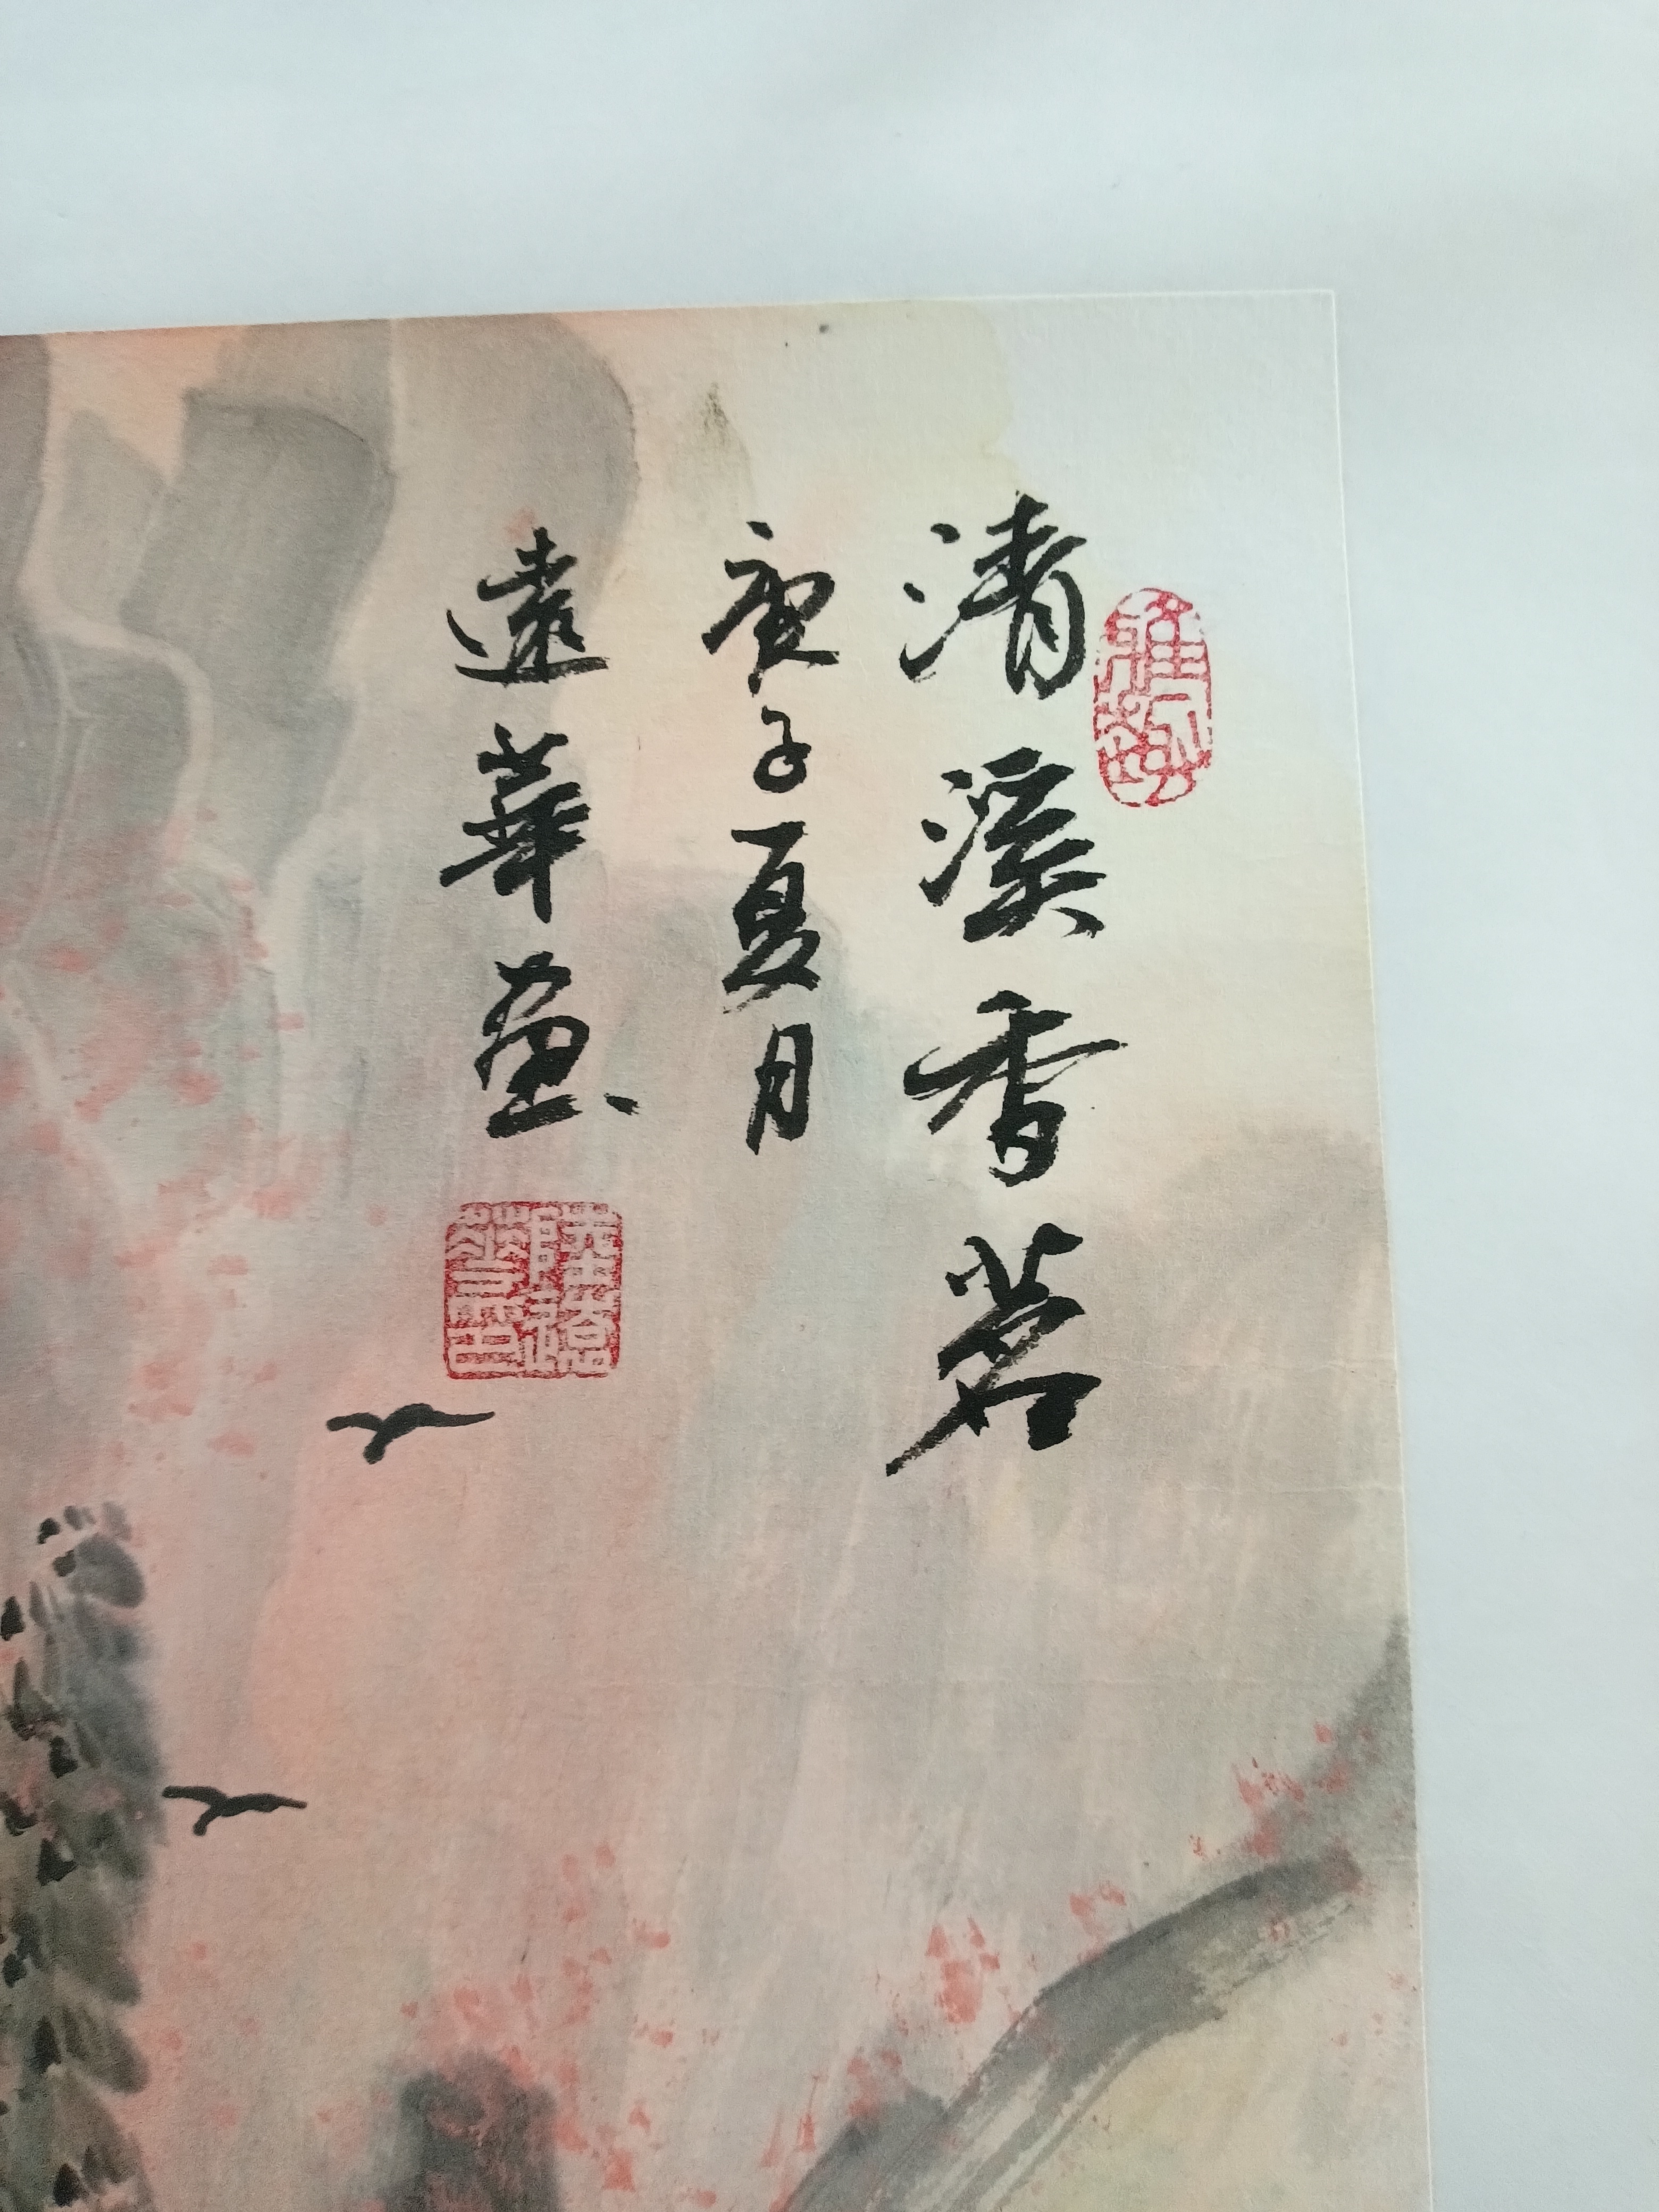 清溪香茗
庚子夏月
遠華画